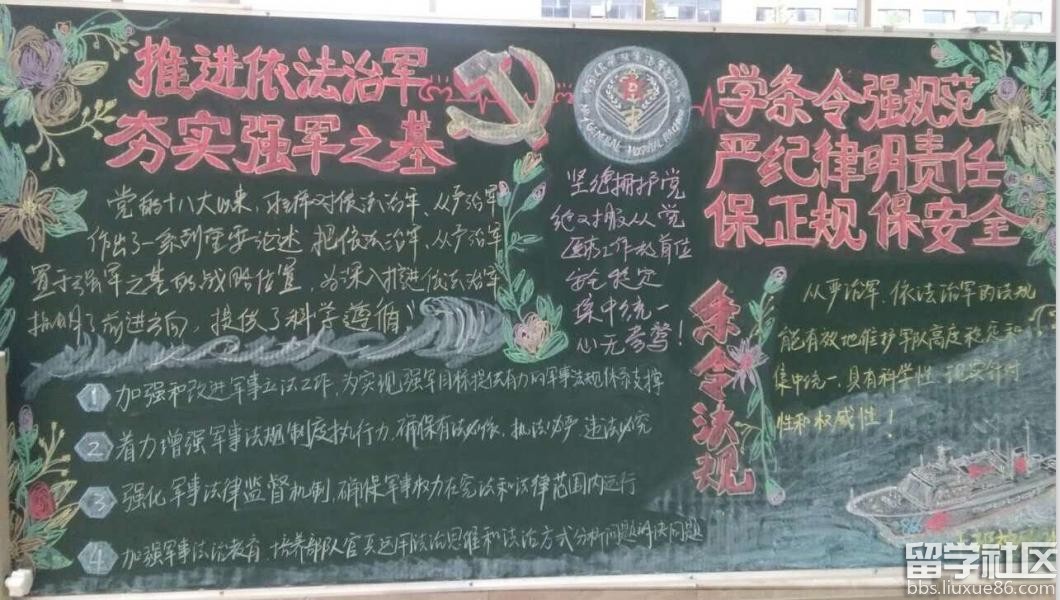 推进依法治军
夯实强军之基
党的十八大以来，习主席对依法治军、从严治军
作出了一系列重要论述 把依法治军、从严治军
置于强军之基的战略位置，为深入推进依法治军
指明了前进方向，提供了科学遵循
1 加强和改进军事立法工作，为实现强军目标提供有力的军事法规体系支撑
2 着力增强军事法规制度执行力，确保有法必依，执法必严 违法必究
3 强化军事法律监督机制，确保军事权力在宪法和法律范围内运行
4 加强军事法治教育 培养部队官兵运用法治思维和法治方式分析问题解决问题
GENERAL HOSPITAL
坚德拥护党
绝对服从党
医疗工作放首位
安全稳定
集中统一
心无旁骛！
学条令强规范
严纪律明责任
保正规 保安全
条令法规
从严治军、依法治军的法规
能有效地维护军队高度稳定和
集中统一，具有科学性
性和权威性！
留学社区
bbs.liuxue86.com